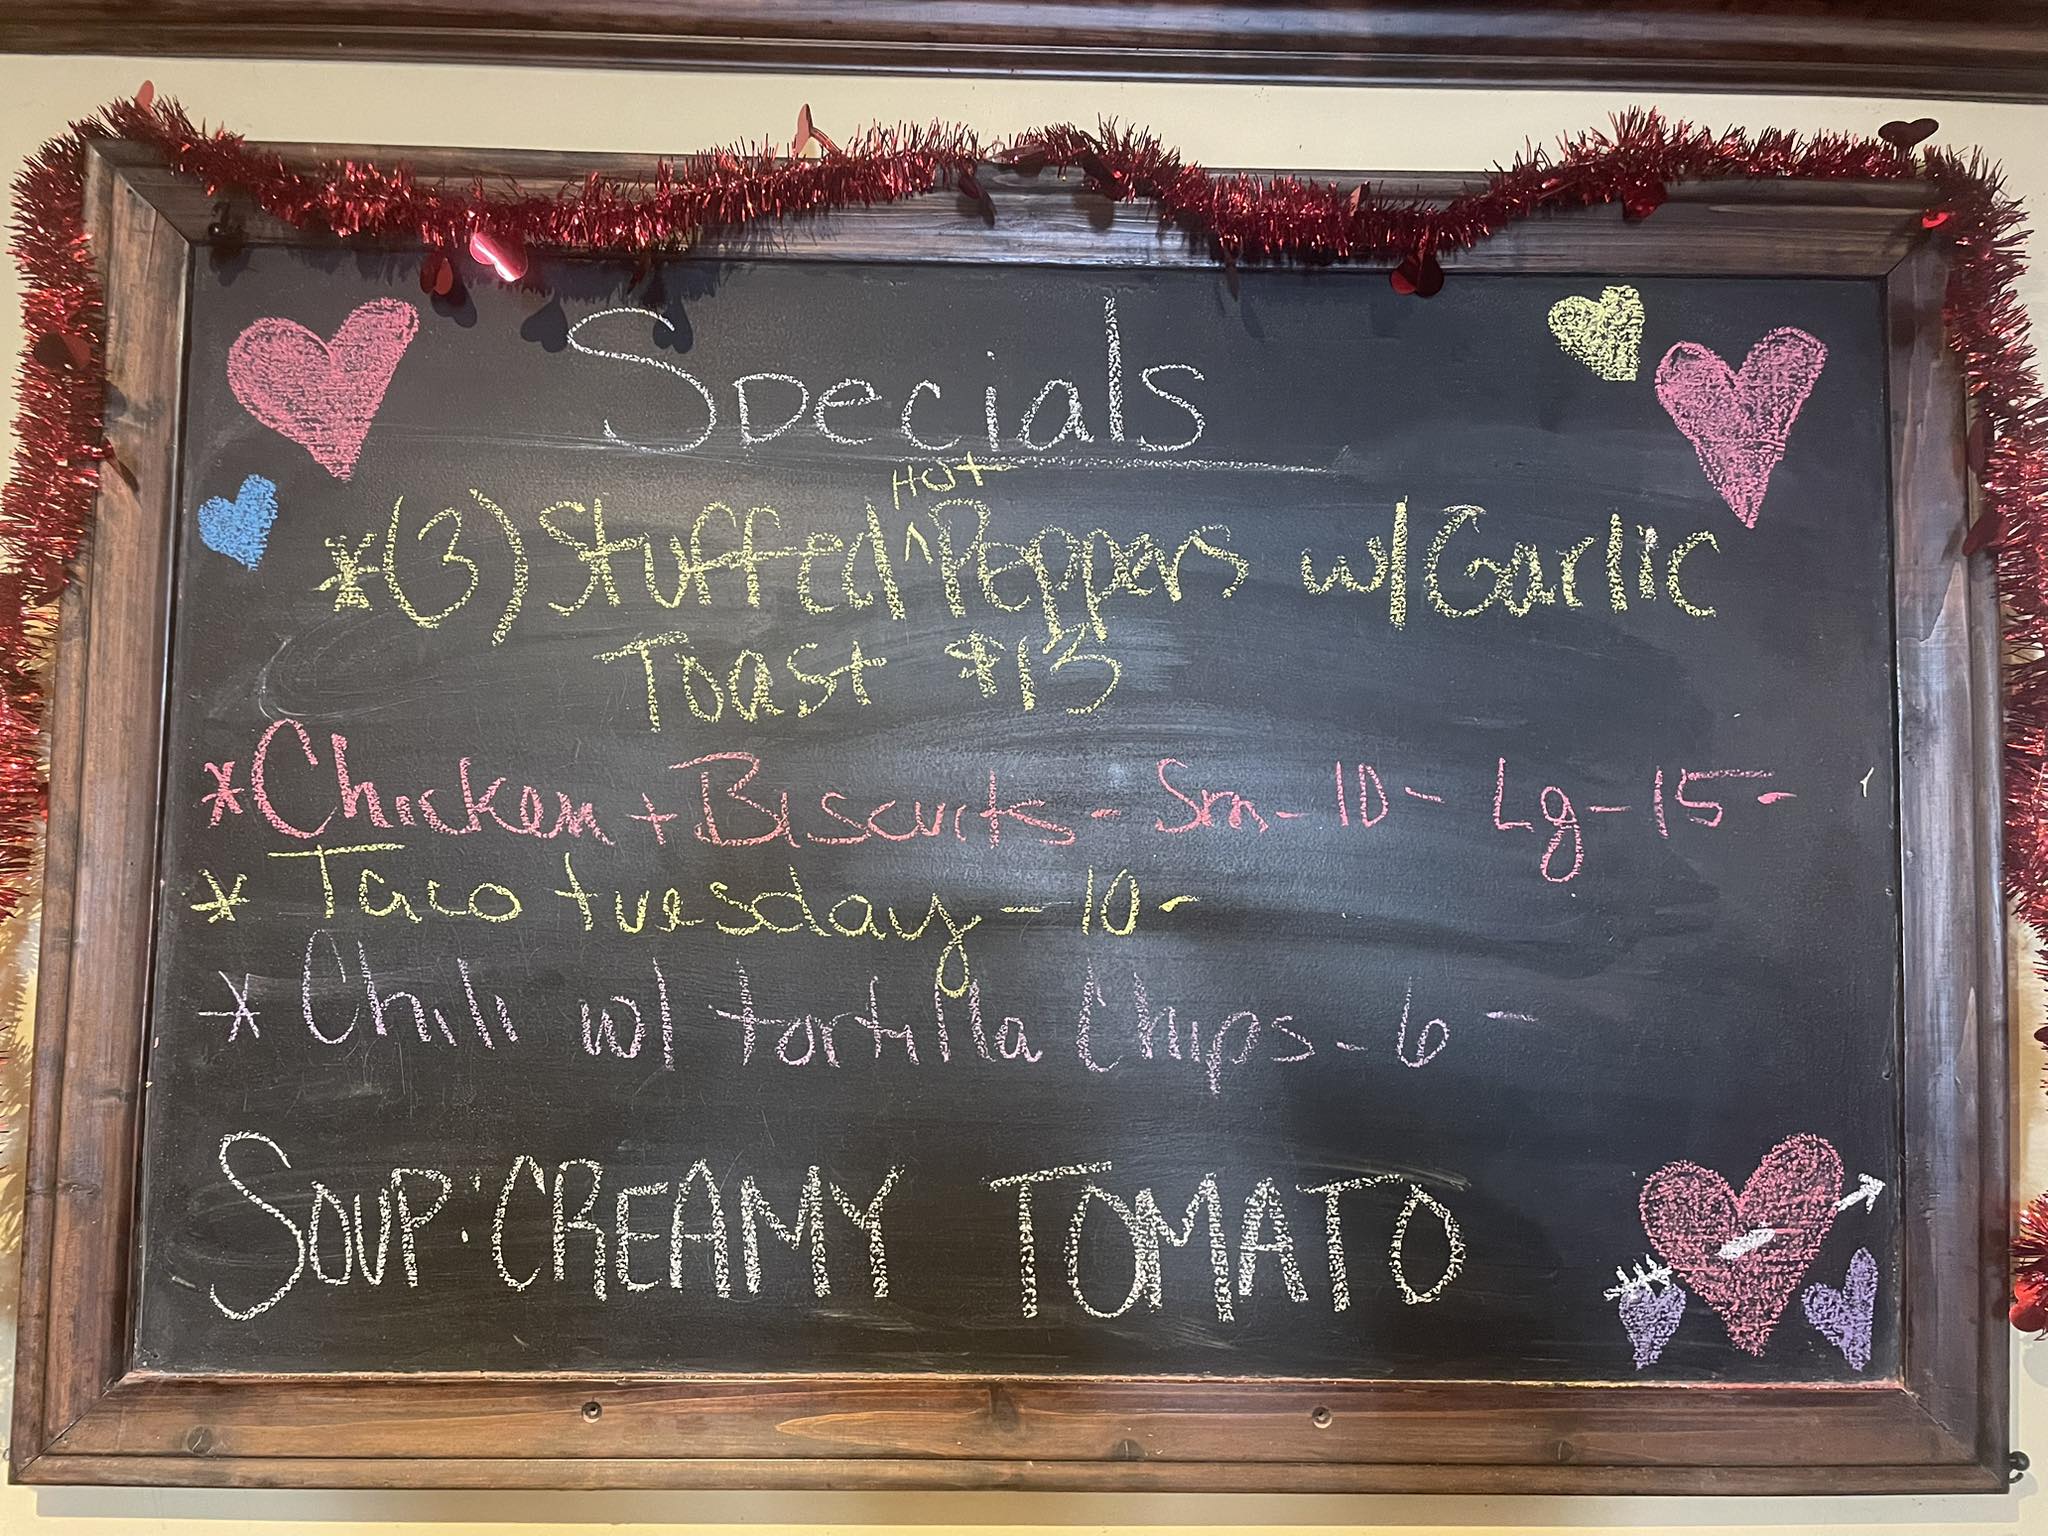 Specials
*(3) Stuffed ^HOT Peppers w/ Garlic
Toast $13
*Chicken + Biscuits - Sm - 10 - Lg - 15 -
* Taco tuesday - 10 -
* Chili w/ tortilla Chips - 6 -
SOUP: CREAMY TOMATO